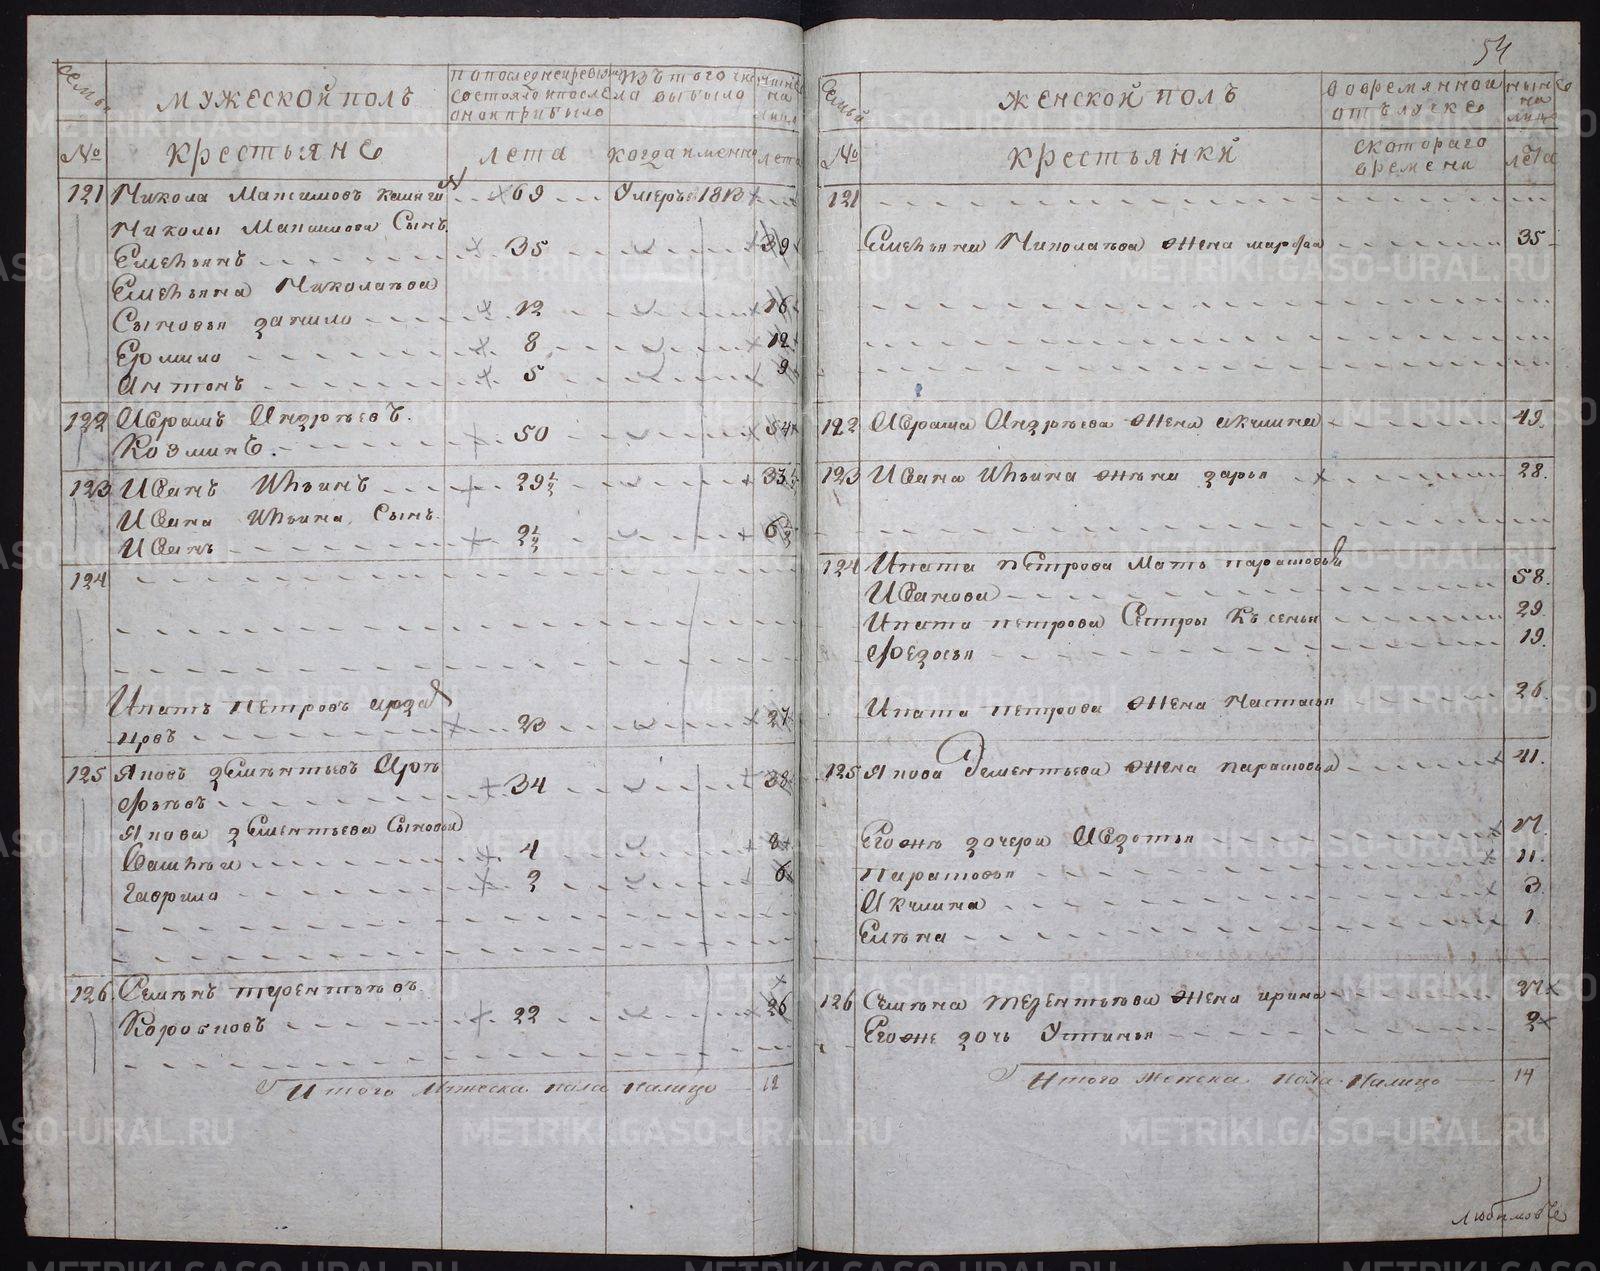 54
семьи
МУЖЕСКОЙ ПОЛЪ
по последней ревизии
состояло и после
оной прибыло
изъ того числа выбыло
ныне на лицо
№
Крестьяне
лета
когда именно
лета
121 Никола Максимовъ 69 Умеръ 1813
Николы Максимова Сынъ
Емельянъ 35 39
Емельяна Николаева
Сыновья данило 12 16
Ермило 8 12
Антонъ 5 9
122 Абрамъ Андреевъ
Козминъ 50 54
123 Иванъ Ильинъ 29½ 33½
Ивана Ильина Сынъ
Иванъ 2½ 6½
124
Ипатъ Петровъ
23 27
125 Яковъ дементьевъ
34 38
Якова дементьева Сыновья
4 8
гаврило 2 6
126 Семенъ терентьевъ
Коробковъ 22 26
Итого Мужеска пола налицо 12
Семьи
ЖЕНСКОЙ ПОЛЪ
во временной
отълучке
ныне на лицо
№
Крестьянки
с котораго
времени
лета
121
Емельяна Николаева жена марфа 35
122 Абрама Андреева жена акилина 49
123 Ивана Ильина жена дарья 28
124 Ипата Петрова Мать парасковья
Иванова 58
Ипата петрова Сестры Ксенья 29
Федосья 19
Ипата петрова жена Настасья 26
125 Якова Дементьева жена парасковья 41
Егоже дочери Авдотья 17
Парасковья 11
Акилина 3
Елена 1
126 Семена терентьева жена ирина 27
Егоже дочь Устинья 2
Итого Женска пола Налицо 14
METRIKI.GASO-URAL.RU